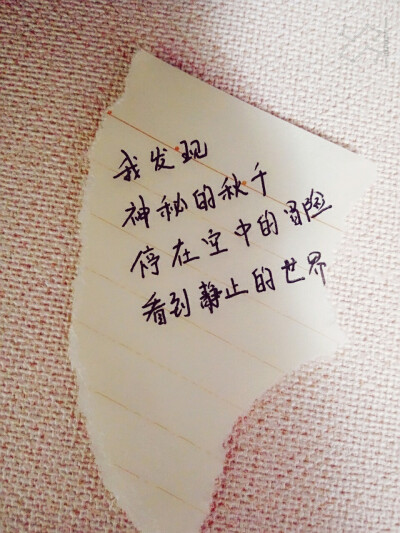 我发现
神秘的秋千
停在空中的冒险
看到静止的世界